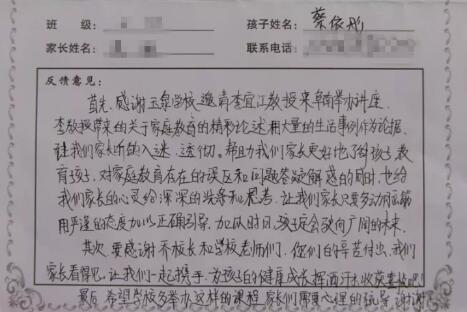 班 级： 孩子姓名：蔡依彤
家长姓名： 联系电话：
反馈意见：
首先，感谢玉泉学校邀请李宜江教授来阜南举办讲座，
李教授带来的关于家庭教育的精彩论述，用大量的生活事例作为论据，
让我们家长听的入迷、透彻。帮助我们家长更好地了解孩子教
育孩子，对家庭教育存在的误区和问题答疑解惑的同时，也给
我们家长的心灵给深深的洗涤和思考，让我们家长只要努力用
用严谨的态度加以正确引导，加以时日，孩子定会驶向广阔的未来。
其次，要感谢乔校长和学校老师们，你们的辛苦付出，我们
家长看得见，让我们一起携手，为孩子的健康成长挥洒汗水收获
最后，希望学校多举办这样的课程，家长们需要心理的疏导，谢谢